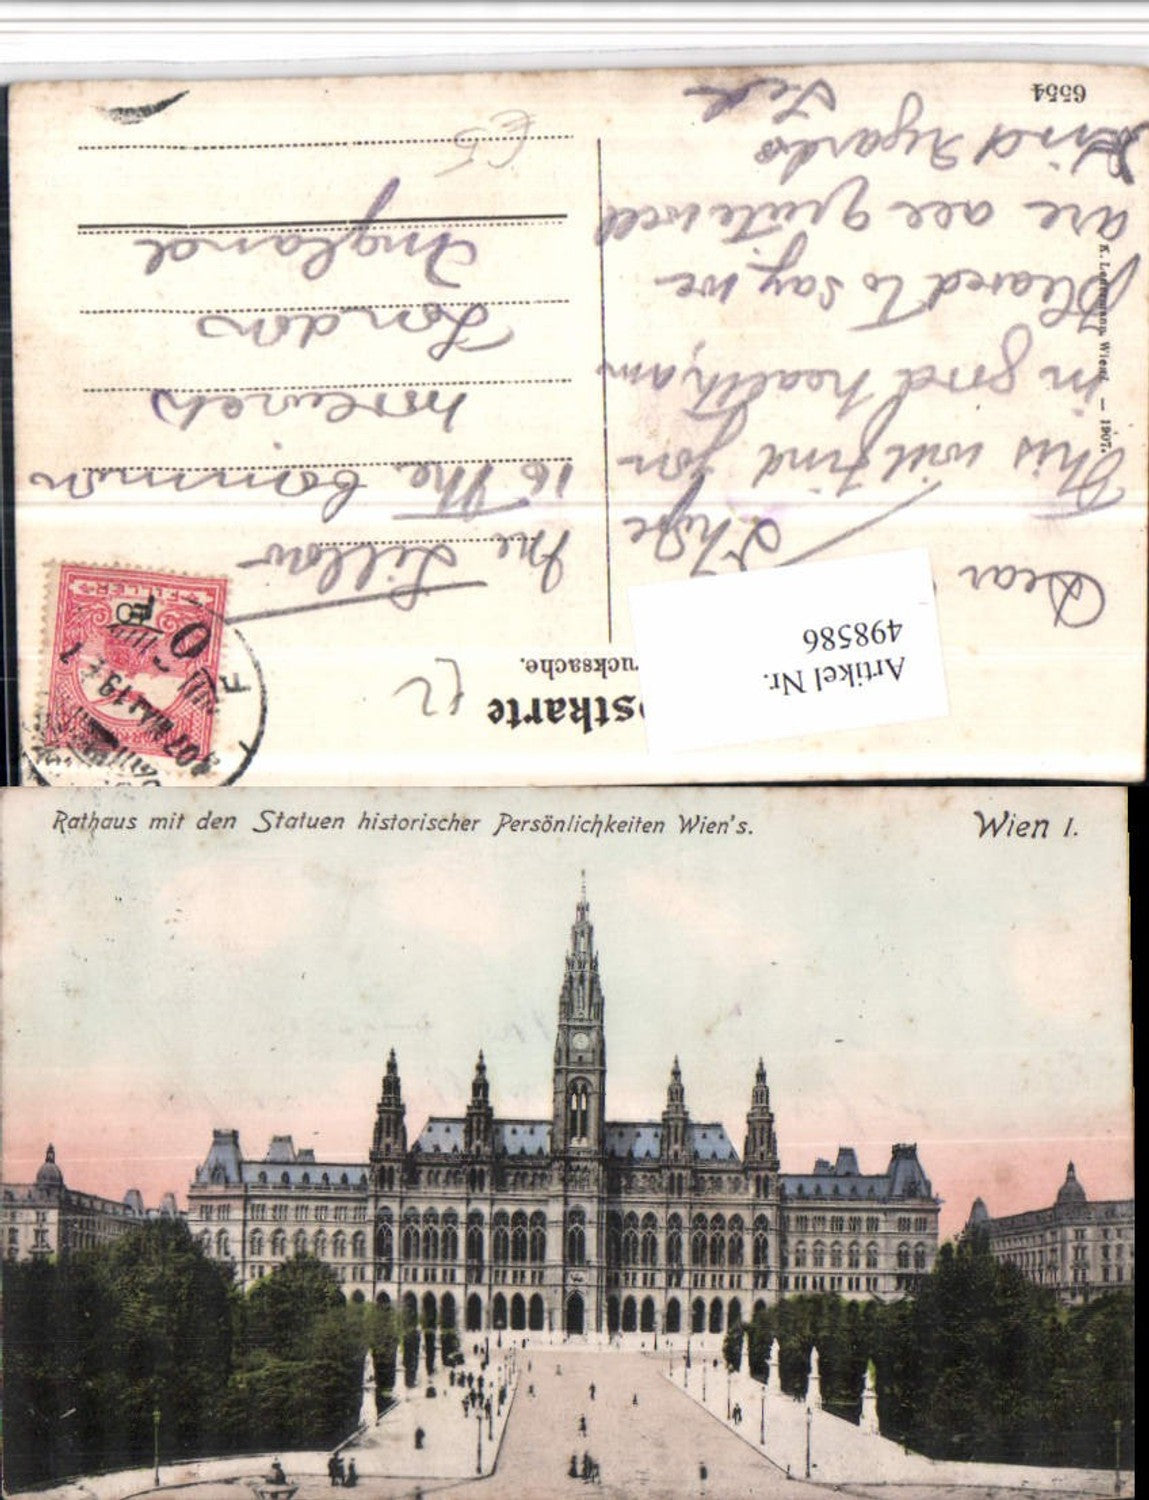 Postkarte
ucksache.
Artikel Nr.
498586
Dear
This will find you
in good health, am
pleased to say, we
are all quite well
Kind regards
6554
K. Ledermann, Wien I. — 1907.
16 The Common
Woolwich
London
England
FILLÉR
10
Rathaus mit den Statuen historischer Persönlichkeiten Wien's.
Wien I.